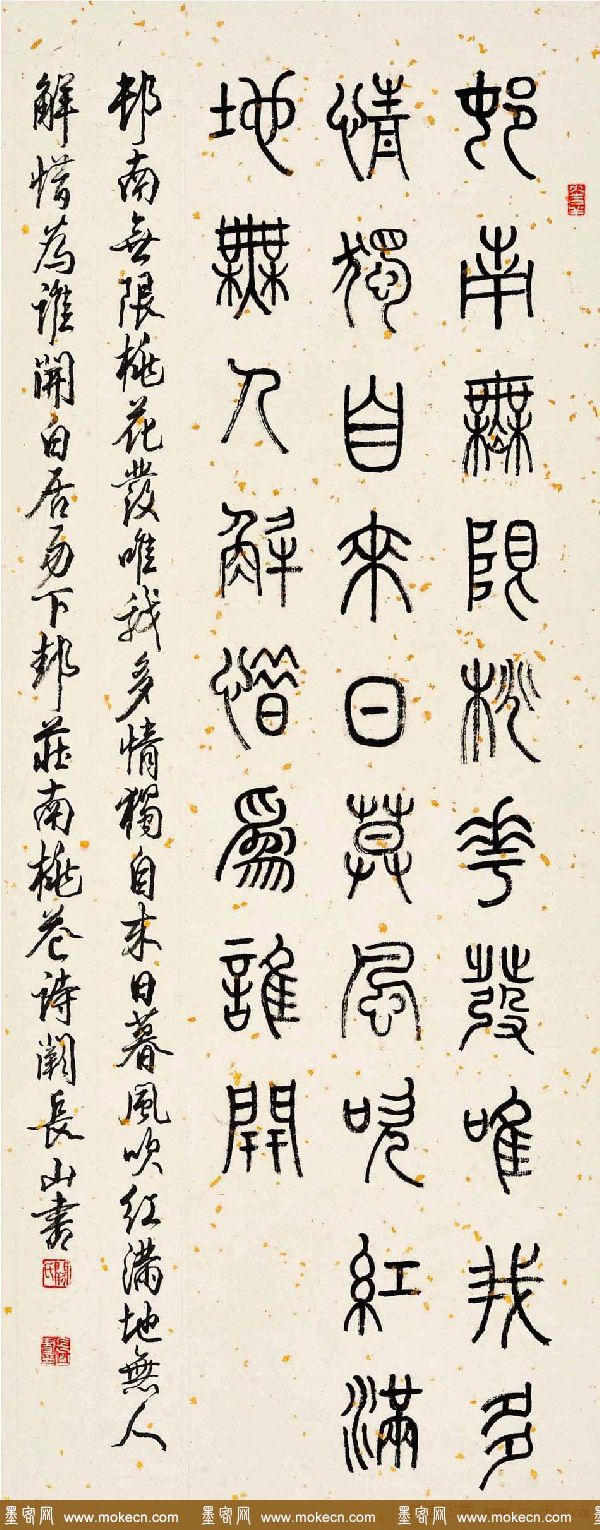 邨南無限桃華發唯我多
情獨自來日莫風吹紅滿
地無人解惜爲誰開
邨南無限桃花發唯我多情獨自來日暮風吹紅滿地無人
解惜為誰開白居易下邽莊南桃花詩闞長山書
墨客网 www.mokecn.com 墨客网 www.mokecn.com 墨客网 www.mokecn.com